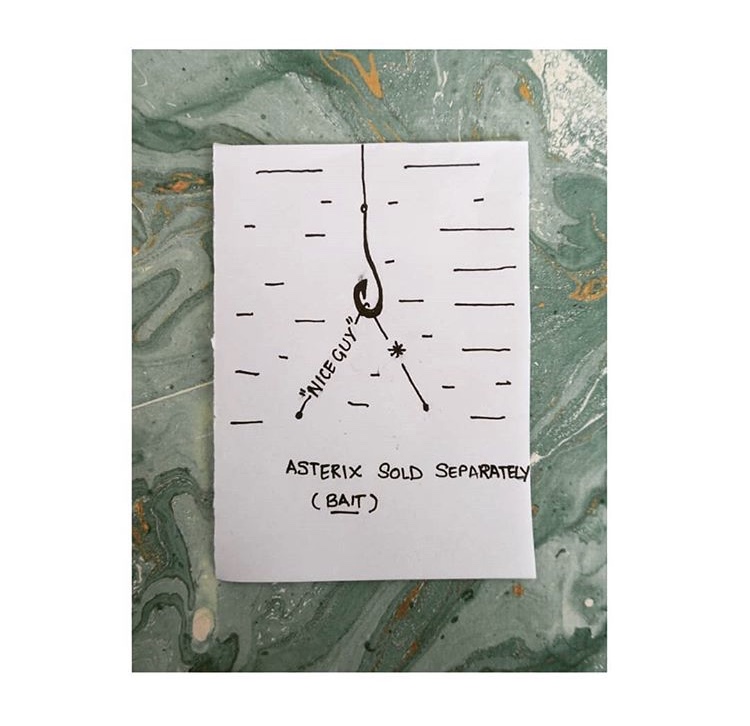 "NICE GUY"
*
ASTERIX SOLD SEPARATELY
(BAIT)